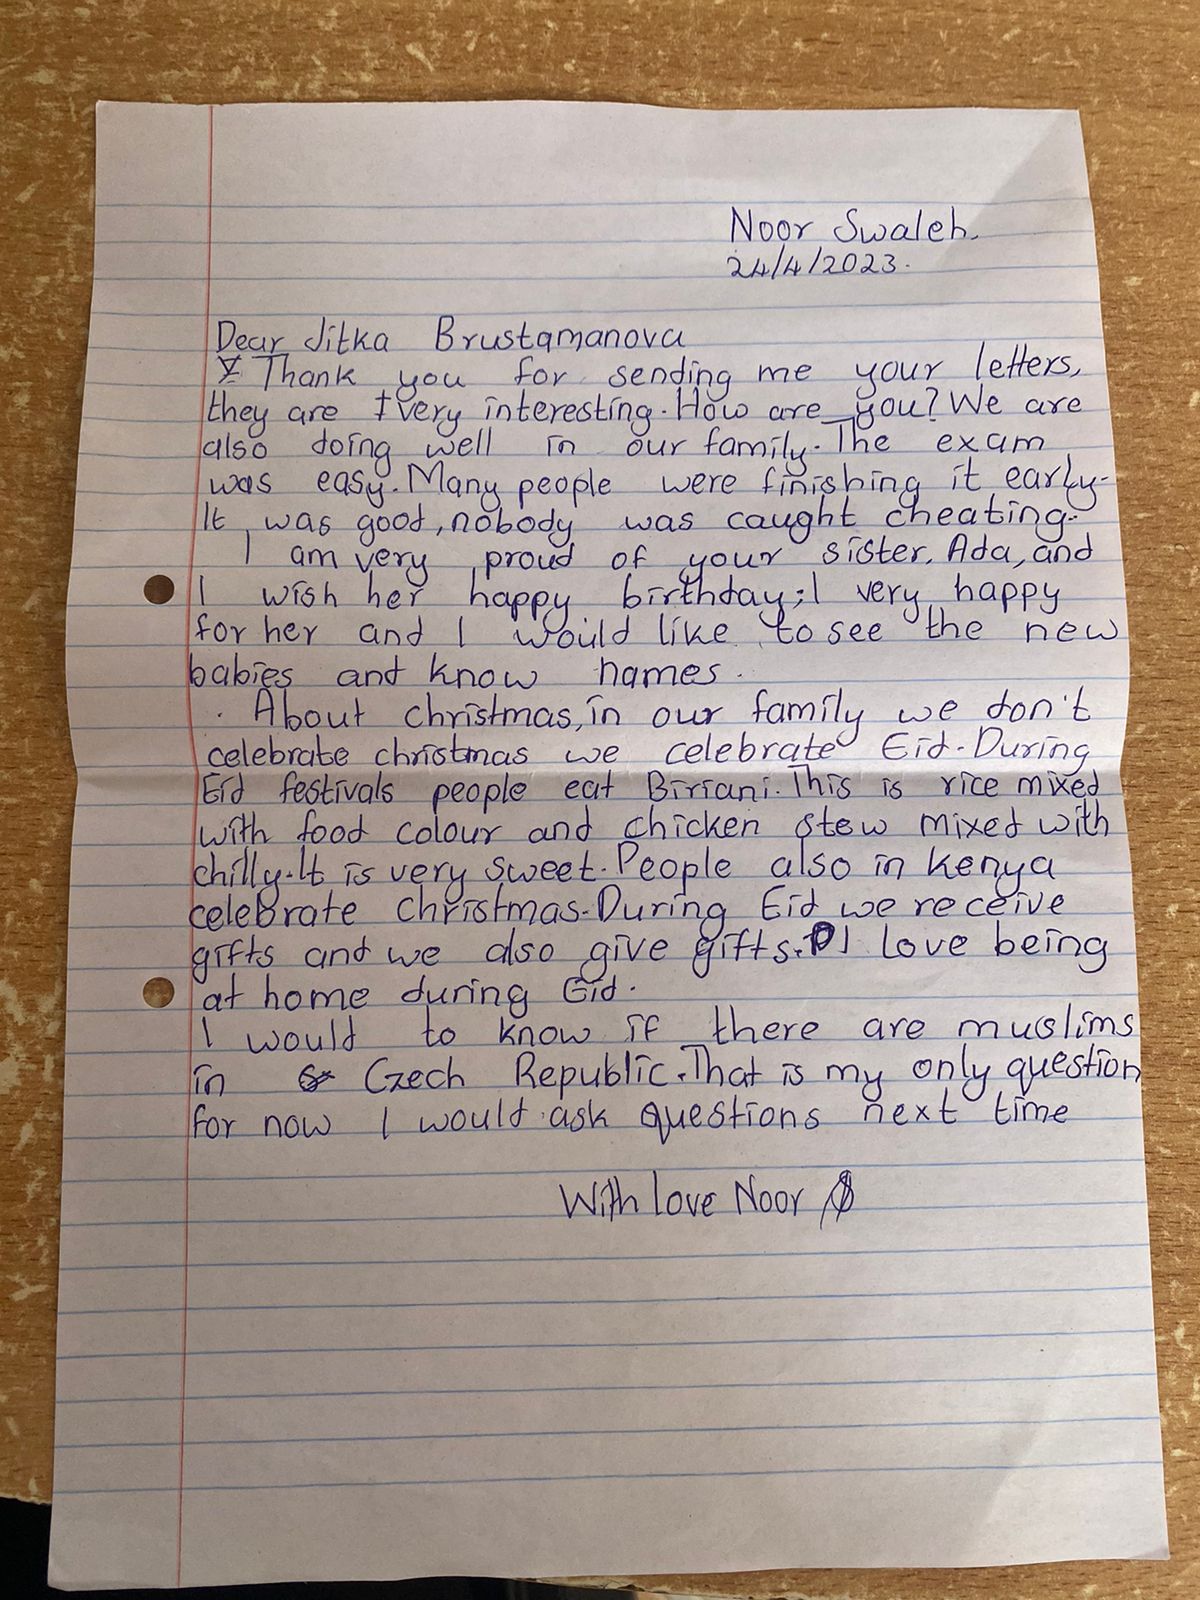 Noor Swaleh.
24/4/2023.
Dear Jitka Brustamanova
Thank you for sending me your letters,
they are very interesting. How are you? We are
also doing well in our family. The exam
was easy. Many people were finishing it early.
It was good, nobody was caught cheating.
I am very proud of your sister, Ada, and
I wish her happy birthday; I very happy
for her and I would like to see the new
babies and know names.
About christmas, in our family we don't
celebrate christmas we celebrate Eid. During
Eid festivals people eat Biriani. This is rice mixed
with food colour and chicken stew mixed with
chilly. It is very sweet. People also in Kenya
celebrate christmas. During Eid we receive
gifts and we also give gifts. I love being
at home during Eid.
I would to know if there are muslims
in Czech Republic. That is my only question
for now I would ask questions next time
With love Noor